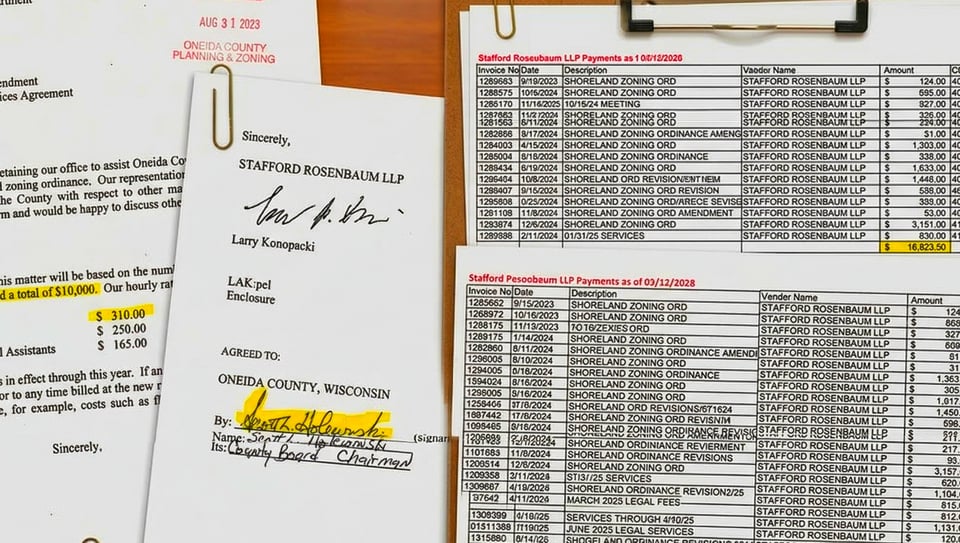 AUG 31 2023
ONEIDA COUNTY
PLANNING & ZONING
endment
ices Agreement
etaining our office to assist Oneida Co
l zoning ordinance. Our representation
the County with respect to other ma
rm and would be happy to discuss othe
his matter will be based on the num
d a total of $10,000. Our hourly rat
$ 310.00
$ 250.00
l Assistants $ 165.00
s in effect through this year. If an
or to any time billed at the new r
e, for example, costs such as f
Sincerely,
Sincerely,
STAFFORD ROSENBAUM LLP
Larry Konopacki
LAK:pel
Enclosure
AGREED TO:
ONEIDA COUNTY, WISCONSIN
By: Scott Holewinski (signar
Name: Scott L. Holewinski
Its: County Board Chairman
Stafford Roseubaum LLP Payments as
Invoice No Date Description Vaodor Name Amount
1289663 9/19/2023 SHORELAND ZONING ORD STAFFORD ROSENBAUM LLP $ 124.00
1288575 10/6/2024 SHORELAND ZONING ORD STAFFORD ROSENBAUM LLP $ 695.00
1285170 11/16/2025 10/16/24 MEETING STAFFORD ROSENBAUM LLP $ 927.00
SHORELAND ZONING ORD STAFFORD ROSENBAUM LLP $ 326.00
SHORELAND ZONING ORD STAFFORD ROSENBAUM LLP $
1282856 9/17/2024 SHORELAND ZONING ORDINANCE AMENG STAFFORD ROSENBAUM LLP $ 51.00
1284003 4/15/2024 SHORELAND ZONING ORD STAFFORD ROSENBAUM LLP $ 1,303.00
1285004 8/16/2024 SHORELAND ZONING ORDINANCE STAFFORD ROSENBAUM LLP $ 338.00
1288434 6/19/2024 SHORELAND ZONING ORD STAFFORD ROSENBAUM LLP $ 1,633.00
1286404 10/8/2024 SHORELAND ORD STAFFORD ROSENBAUM LLP $ 1,448.00
1288407 9/15/2024 SHORELAND ZONING ORD REVISION STAFFORD ROSENBAUM LLP $ 588.00
1295808 0/25/2024 SHORELAND ZONING STAFFORD ROSENBAUM LLP $ 339.00
1281108 11/8/2024 SHORELAND ZONING ORD AMENDMENT STAFFORD ROSENBAUM LLP $ 53.00
1283874 12/6/2024 SHORELAND ZONING ORD STAFFORD ROSENBAUM LLP $ 3,151.00
1289888 2/11/2024 01/31/25 SERVICES STAFFORD ROSENBAUM LLP $ 830.00
$ 16,823.50
Stafford Pesoobeum LLP Payments as of 03/12/2028
Invoice No Date Description Vender Name Amount
1285662 9/15/2023 SHORELAND ZONING ORD STAFFORD ROSENBAUM LLP $ 124
1268972 10/16/2023 SHORELAND ZONING ORD STAFFORD ROSENBAUM LLP $ 868
1288175 11/13/2023 STAFFORD ROSENBAUM LLP $ 327
1289175 1/14/2024 SHORELAND ZONING ORD STAFFORD ROSENBAUM LLP $ 609
1282860 8/11/2024 SHORELAND ZONING ORDINANCE AMENDI STAFFORD ROSENBAUM LLP $ 81
1296005 8/10/2024 SHORELAND ZONING ORD STAFFORD ROSENBAUM LLP $ 31
1294005 8/16/2024 SHORELAND ZONING ORDINANCE STAFFORD ROSENBAUM LLP $ 1,363
1594024 8/16/2024 SHORELAND ZONING ORD STAFFORD ROSENBAUM LLP $ 305
1296005 9/16/2024 SHORELAND ZONING ORD STAFFORD ROSENBAUM LLP $ 1,017
1258464 17/8/2024 SHORELAND ORD REVISIONS/671624 STAFFORD ROSENBAUM LLP $ 1,450
1887442 9/18/2024 SHORELAND ZONING ORD STAFFORD ROSENBAUM LLP $ 598
8/16/2024 SHORELAND ZONING ORDINANCE STAFFORD ROSENBAUM LLP $
STAFFORD ROSENBAUM LLP $ 217
1101683 11/8/2024 SHORELAND ORDINANCE REVISIONS STAFFORD ROSENBAUM LLP $ 93
1209514 12/6/2024 SHORELAND ZONING ORD STAFFORD ROSENBAUM LLP $ 3,157
1209358 3/11/2028 SERVICES STAFFORD ROSENBAUM LLP $ 620
1309687 4/19/2026 SHORELAND ORDINANCE REVISION2/25 STAFFORD ROSENBAUM LLP $ 1,104
4/11/2024 MARCH 2025 LEGAL FEES STAFFORD ROSENBAUM LLP $ 815
1308399 SERVICES THROUGH STAFFORD ROSENBAUM LLP $ 812
01511388 JUNE 2025 LEGAL SERVICES STAFFORD ROSENBAUM LLP $ 1,131
1315880 STAFFORD ROSENBAUM LLP $ 120